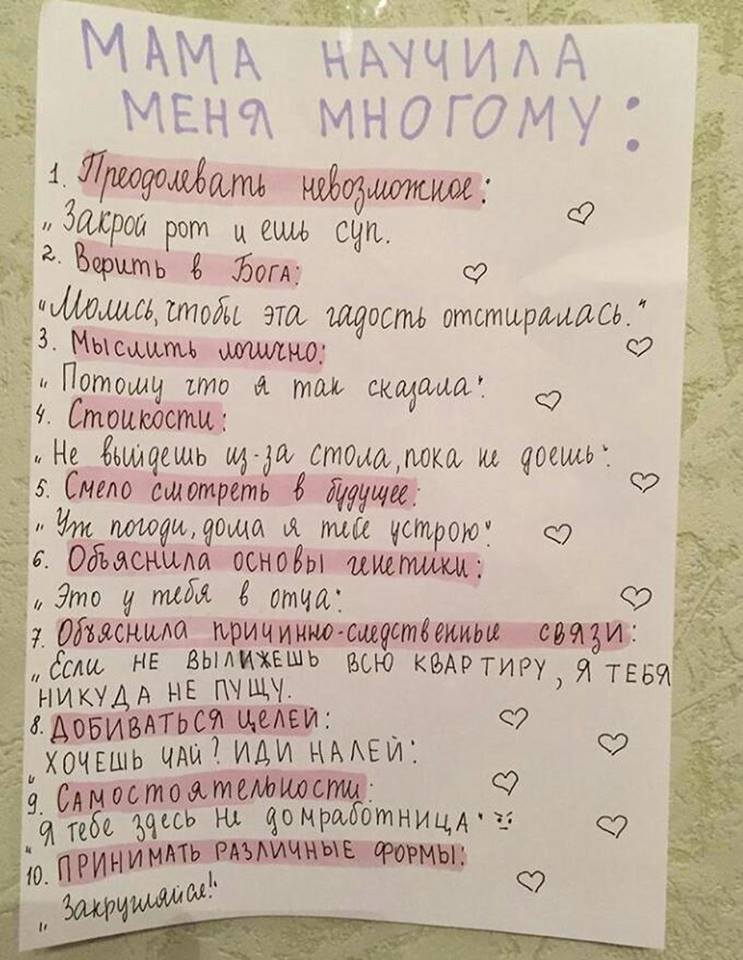 МАМА НАУЧИЛА
МЕНЯ МНОГОМУ:
1. Преодолевать невозможное:
„Закрой рот и ешь суп.
2. Верить в Бога:
"Молись, чтобы эта гадость отстиралась."
3. Мыслить логично:
„Потому что я так сказала"
4. Стойкости:
„Не выйдешь из-за стола, пока не доешь".
5. Смело смотреть в будущее:
„Уж погоди, дома я тебе устрою"
6. Объяснила основы генетики:
„Это у тебя в отца"
7. Объяснила причинно-следственные связи:
„Если не вылижешь всю квартиру, я тебя
никуда не пущу.
8. Добиваться целей:
„Хочешь чай? Иди налей"
9. Самостоятельности:
"Я тебе здесь не домработница"
10. Принимать различные формы:
„Закругляйся!"